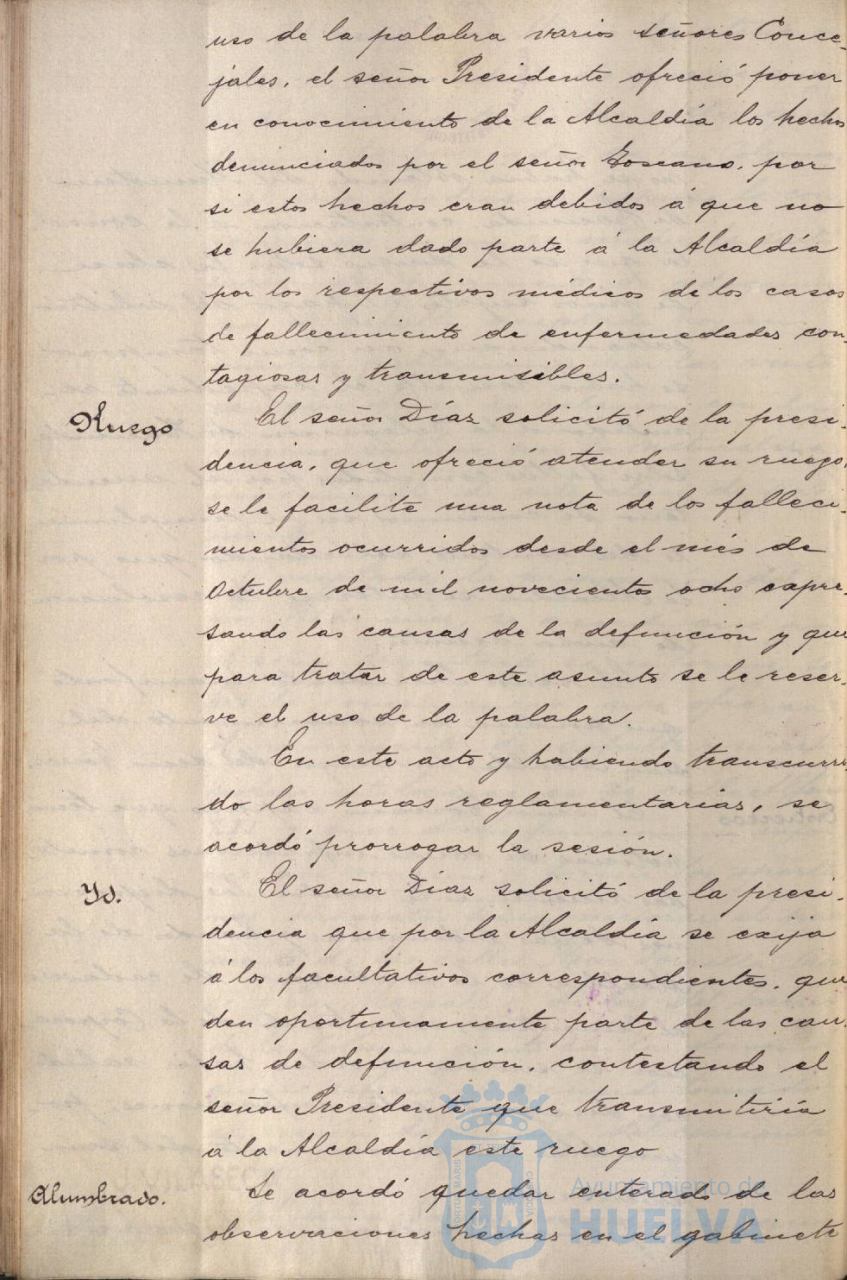 uso de la palabra varios señores Conce-
jales, el señor Presidente ofreció poner
en conocimiento de la Alcaldía los hechos
denunciados por el señor Toscano, por
si estos hechos eran debidos á que no
se hubiera dado parte á la Alcaldía
por los respectivos médicos de los casos
de fallecimiento de enfermedades con-
tagiosas y transmisibles.
Ruego
El señor Díaz solicitó de la presi-
dencia, que ofreció atender su ruego,
se le facilite una nota de los falleci-
mientos ocurridos desde el més de
Octubre de mil novecientos ocho expre-
sando las causas de la defunción y que
para tratar de este asunto se le reser-
ve el uso de la palabra.
En este acto y habiendo transcurri-
do las horas reglamentarias, se
acordó prorrogar la sesión.
Yd.
El señor Díaz solicitó de la presi-
dencia que por la Alcaldía se exija
á los facultativos correspondientes, que
den oportunamente parte de las cau-
sas de defunción, contestando el
señor Presidente que transmitiría
á la Alcaldía este ruego
Alumbrado.
Se acordó quedar enterado de las
observaciones hechas en el gabinete
Ayuntamiento de
HUELVA